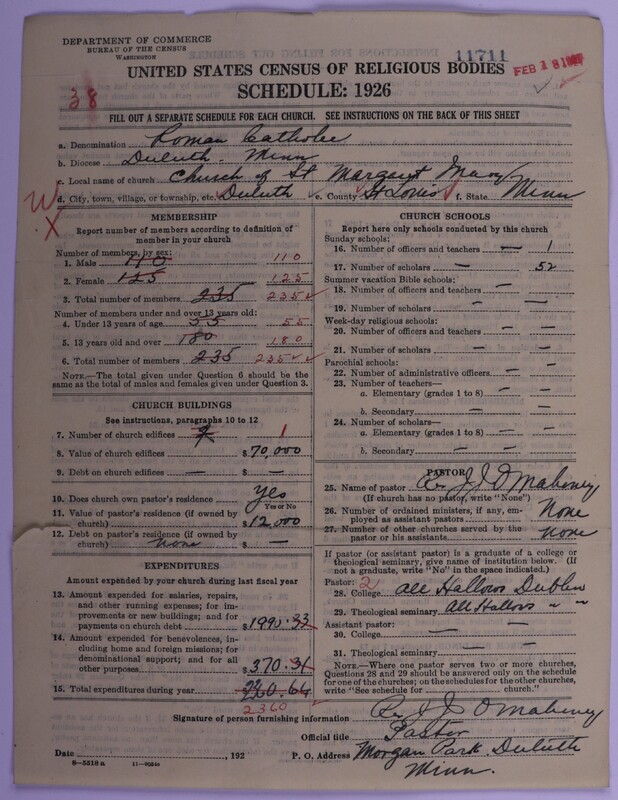 DEPARTMENT OF COMMERCE
BUREAU OF THE CENSUS
WASHINGTON
11711
FEB 18 1927
UNITED STATES CENSUS OF RELIGIOUS BODIES
38
SCHEDULE: 1926
FILL OUT A SEPARATE SCHEDULE FOR EACH CHURCH. SEE INSTRUCTIONS ON THE BACK OF THIS SHEET
a. Denomination Roman Catholic
b. Diocese Duluth - Minn
c. Local name of church Church of St Margaret Mary
d. City, town, village, or township, etc. Duluth e. County St Louis f. State Minn
MEMBERSHIP
Report number of members according to definition of
member in your church
Number of members, by sex:
1. Male 110 110
2. Female 125 125
3. Total number of members 235 235
Number of members under and over 13 years old:
4. Under 13 years of age 55 55
5. 13 years old and over 180 180
6. Total number of members 235 235
NOTE.—The total given under Question 6 should be
the same as the total of males and females given under Question 3.
CHURCH BUILDINGS
See instructions, paragraphs 10 to 12
7. Number of church edifices 1
8. Value of church edifices $ 70,000
9. Debt on church edifices — $ —
10. Does church own pastor's residence Yes
Yes or No
11. Value of pastor's residence (if owned by
church) $ 12,000
12. Debt on pastor's residence (if owned by
church) none $ —
EXPENDITURES
Amount expended by your church during last fiscal year
13. Amount expended for salaries, repairs,
and other running expenses; for im-
provements or new buildings; and for
payments on church debt $ 1990.33
14. Amount expended for benevolences, in-
cluding home and foreign missions; for
denominational support; and for all
other purposes $ 370.31
15. Total expenditures during year 2360.64
2360
CHURCH SCHOOLS
Report here only schools conducted by this church
Sunday schools:
16. Number of officers and teachers — 1
17. Number of scholars — 52
Summer vacation Bible schools:
18. Number of officers and teachers —
19. Number of scholars — —
Week-day religious schools:
20. Number of officers and teachers — —
21. Number of scholars — —
Parochial schools:
22. Number of administrative officers — —
23. Number of teachers—
a. Elementary (grades 1 to 8) — —
b. Secondary — —
24. Number of scholars—
a. Elementary (grades 1 to 8) — —
b. Secondary — —
PASTOR
25. Name of pastor Rev J J O'Mahoney
(If church has no pastor, write "None")
26. Number of ordained ministers, if any, em-
ployed as assistant pastors None
27. Number of other churches served by the
pastor or his assistants none
If pastor (or assistant pastor) is a graduate of a college or
theological seminary, give name of institution below. (If
not a graduate, write "No" in the space indicated.)
Pastor: 2
28. College All Hallows Dublin
29. Theological seminary All Hallows " "
Assistant pastor:
30. College — —
31. Theological seminary — —
NOTE.—Where one pastor serves two or more churches,
Questions 28 and 29 should be answered only on the schedule
for one of the churches; on the schedules for the other churches,
write "See schedule for church."
Signature of person furnishing information Rev J J O'Mahoney
Official title Pastor
Date , 192 P. O. Address Morgan Park. Duluth
Minn.
8—5318 a